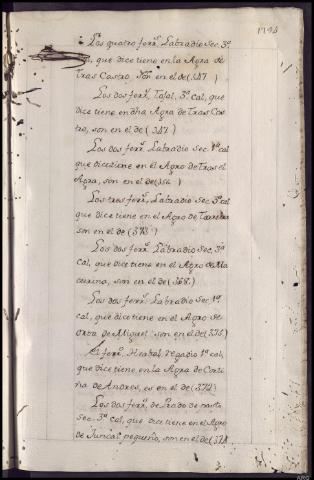 Los quatro ferr.s Labradio Sec. 3.ª
cal, que dice tiene en la Agra de
tras Castro, son en el de (347)
Los dos ferr.s Tojal, 3.ª cal, que
dice tiene en dha Agra de Tras Cas
tro, son en el de (347)
Los dos ferr.s Labradio Sec. 1.ª cal
que dice tiene en el Agro de Tras el
Agra, son en el de
Los tres ferr.s Labradio Sec. 3.ª cal
que dice tiene en el Agro de
son en el de
Los dos ferr.s Labradio Sec. 3.ª
cal, que dice tiene en el Agro de Ma
ceirina, son en el de (368.)
Los dos ferr.s Labradio Sec. 1.ª
cal, que dice tiene en el Agro de
Orta de Miguel son en el de
El ferr.o Herbal Regadio 1.ª cal,
que dice tiene en la Agra de Corti
ña de Andres, es en el de (372)
Los dos ferr.s de Prado de
Sec. 3.ª cal, que dice tiene en el Agro
de Juncal pequeño, son en el de